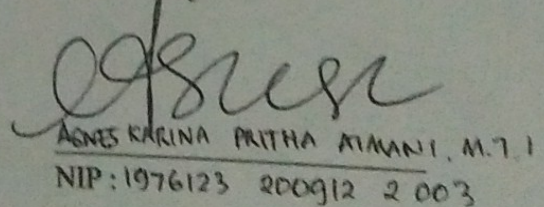 AGNES KARINA PRITHA ATMANI. M.T.I
NIP: 1976123 200912 2 003